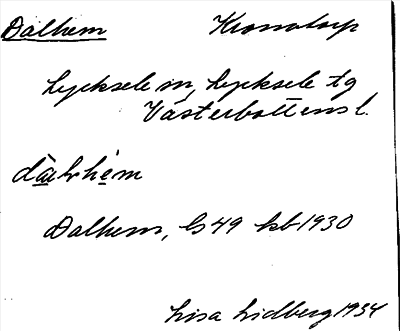 Dalhem Kronotorp
Lycksele sn, Lycksele tg
Västerbottens l.
dà̱lhé̱m
Dalhem, G 49 kb 1930
Lisa Lidberg 1934